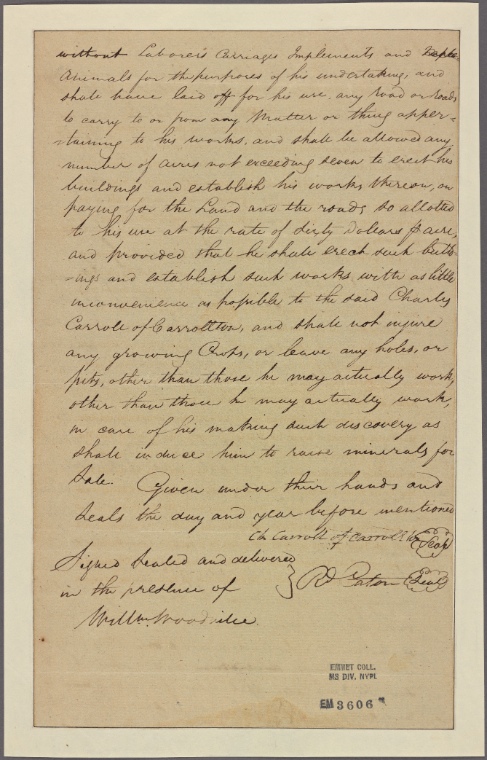 without Laborers Carriages Implements and
Animals for the purposes of his undertaking, and
shall have laid off for his use, any road or roads
to carry to or from any Matter or thing apper-
-taining to his works, and shall be allowed any
number of acres not exceeding seven to erect his
buildings and establish his works thereon, on
paying for the Land and the roads so allotted
to his use at the rate of sixty Dollars ⅌ acre,
and provided that he shall erect such build-
-ings and establish such works with as little
inconvenience as possible to the said Charles
Carroll of Carrollton, and shall not injure
any growing Crops, or leave any holes, or
pits, other than those he may actually work,
other than those he may actually work,
in case of his making such discovery as
shall induce him to raise minerals for
Sale. Given under their hands and
Seals the day and year before mentioned
Ch Carroll of Carrollton Seal
Signed Sealed and delivered
in the presence of
Rd Caton Seal
Willm Woodville
EMMET COLL.
MS DIV. NYPL
EM 3606